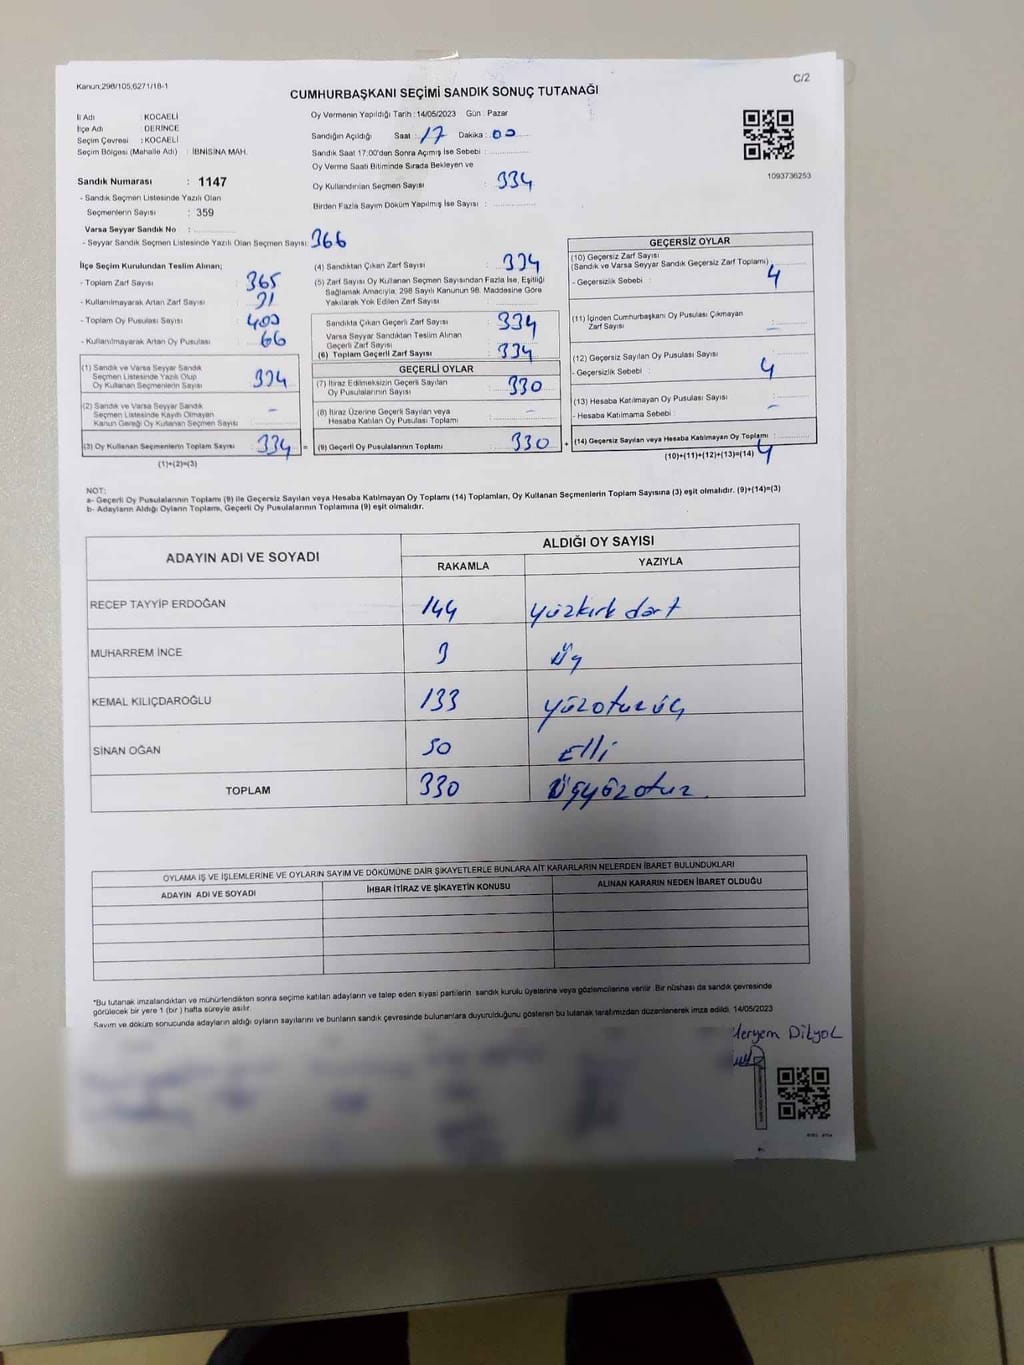 Kanun;298/105;6271/18-1
C/2
CUMHURBAŞKANI SEÇİMİ SANDIK SONUÇ TUTANAĞI
İl Adı : KOCAELİ
İlçe Adı : DERİNCE
Seçim Çevresi : KOCAELİ
Seçim Bölgesi (Mahalle Adı) : İBNİSİNA MAH.
Sandık Numarası : 1147
- Sandık Seçmen Listesinde Yazılı Olan
Seçmenlerin Sayısı : 359
Varsa Seyyar Sandık No :
- Seyyar Sandık Seçmen Listesinde Yazılı Olan Seçmen Sayısı: 366
Oy Vermenin Yapıldığı Tarih : 14/05/2023 Gün : Pazar
Sandığın Açıldığı Saat : 17 Dakika : 00
Sandık Saat 17:00'dan Sonra Açılmış İse Sebebi :
Oy Verme Saati Bitiminde Sırada Bekleyen ve
Oy Kullandırılan Seçmen Sayısı : 334
Birden Fazla Sayım Döküm Yapılmış İse Sayısı :
1093736253
İlçe Seçim Kurulundan Teslim Alınan;
- Toplam Zarf Sayısı : 365
- Kullanılmayarak Artan Zarf Sayısı : 31
- Toplam Oy Pusulası Sayısı : 400
- Kullanılmayarak Artan Oy Pusulası : 66
(1) Sandık ve Varsa Seyyar Sandık
Seçmen Listesinde Yazılı Olup
Oy Kullanan Seçmenlerin Sayısı : 334
(2) Sandık ve Varsa Seyyar Sandık
Seçmen Listesinde Kayıtlı Olmayan
Kanun Gereği Oy Kullanan Seçmen Sayısı : -
(3) Oy Kullanan Seçmenlerin Toplam Sayısı : 334
(1)+(2)=(3)
(4) Sandıktan Çıkan Zarf Sayısı : 334
(5) Zarf Sayısı Oy Kullanan Seçmen Sayısından Fazla İse, Eşitliği
Sağlamak Amacıyla, 298 Sayılı Kanunun 98. Maddesine Göre
Yakılarak Yok Edilen Zarf Sayısı :
Sandıkta Çıkan Geçerli Zarf Sayısı : 334
Varsa Seyyar Sandıktan Teslim Alınan
Geçerli Zarf Sayısı :
(6) Toplam Geçerli Zarf Sayısı : 334
GEÇERLİ OYLAR
(7) İtiraz Edilmeksizin Geçerli Sayılan
Oy Pusulalarının Sayısı : 330
(8) İtiraz Üzerine Geçerli Sayılan veya
Hesaba Katılan Oy Pusulası Toplamı : -
= (9) Geçerli Oy Pusulalarının Toplamı : 330
GEÇERSİZ OYLAR
(10) Geçersiz Zarf Sayısı
(Sandık ve Varsa Seyyar Sandık Geçersiz Zarf Toplamı)
- Geçersizlik Sebebi : 4
(11) İçinden Cumhurbaşkanı Oy Pusulası Çıkmayan
Zarf Sayısı : -
(12) Geçersiz Sayılan Oy Pusulası Sayısı :
- Geçersizlik Sebebi : 4
(13) Hesaba Katılmayan Oy Pusulası Sayısı :
- Hesaba Katılmama Sebebi : -
+ (14) Geçersiz Sayılan veya Hesaba Katılmayan Oy Toplamı : 4
(10)+(11)+(12)+(13)=(14)
NOT:
a- Geçerli Oy Pusulalarının Toplamı (9) ile Geçersiz Sayılan veya Hesaba Katılmayan Oy Toplamı (14) Toplamları, Oy Kullanan Seçmenlerin Toplam Sayısına (3) eşit olmalıdır. (9)+(14)=(3)
b- Adayların Aldığı Oyların Toplamı, Geçerli Oy Pusulalarının Toplamına (9) eşit olmalıdır.
ADAYIN ADI VE SOYADI
ALDIĞI OY SAYISI
RAKAMLA YAZIYLA
RECEP TAYYİP ERDOĞAN 144 yüzkırk dört
MUHARREM İNCE 3 üç
KEMAL KILIÇDAROĞLU 133 yüzotuz üç
SİNAN OĞAN 50 Elli
TOPLAM 330 üçyüzotuz.
OYLAMA İŞ VE İŞLEMLERİNE VE OYLARIN SAYIM VE DÖKÜMÜNE DAİR ŞİKAYETLERLE BUNLARA AİT KARARLARIN NELERDEN İBARET BULUNDUKLARI
ADAYIN ADI VE SOYADI İHBAR İTİRAZ VE ŞİKAYETİN KONUSU ALINAN KARARIN NEDEN İBARET OLDUĞU
*Bu tutanak imzalandıktan ve mühürlendikten sonra seçime katılan adayların ve talep eden siyasi partilerin sandık kurulu üyelerine veya gözlemcilerine verilir. Bir nüshası da sandık çevresinde
görülecek bir yere 1 (bir) hafta süreyle asılır.
Sayım ve döküm sonucunda adayların aldığı oyların sayılarını ve bunların sandık çevresinde bulunanlara duyurulduğunu gösteren bu tutanak tarafımızdan düzenlenerek imza edildi. 14/05/2023
Meryem Dilyol